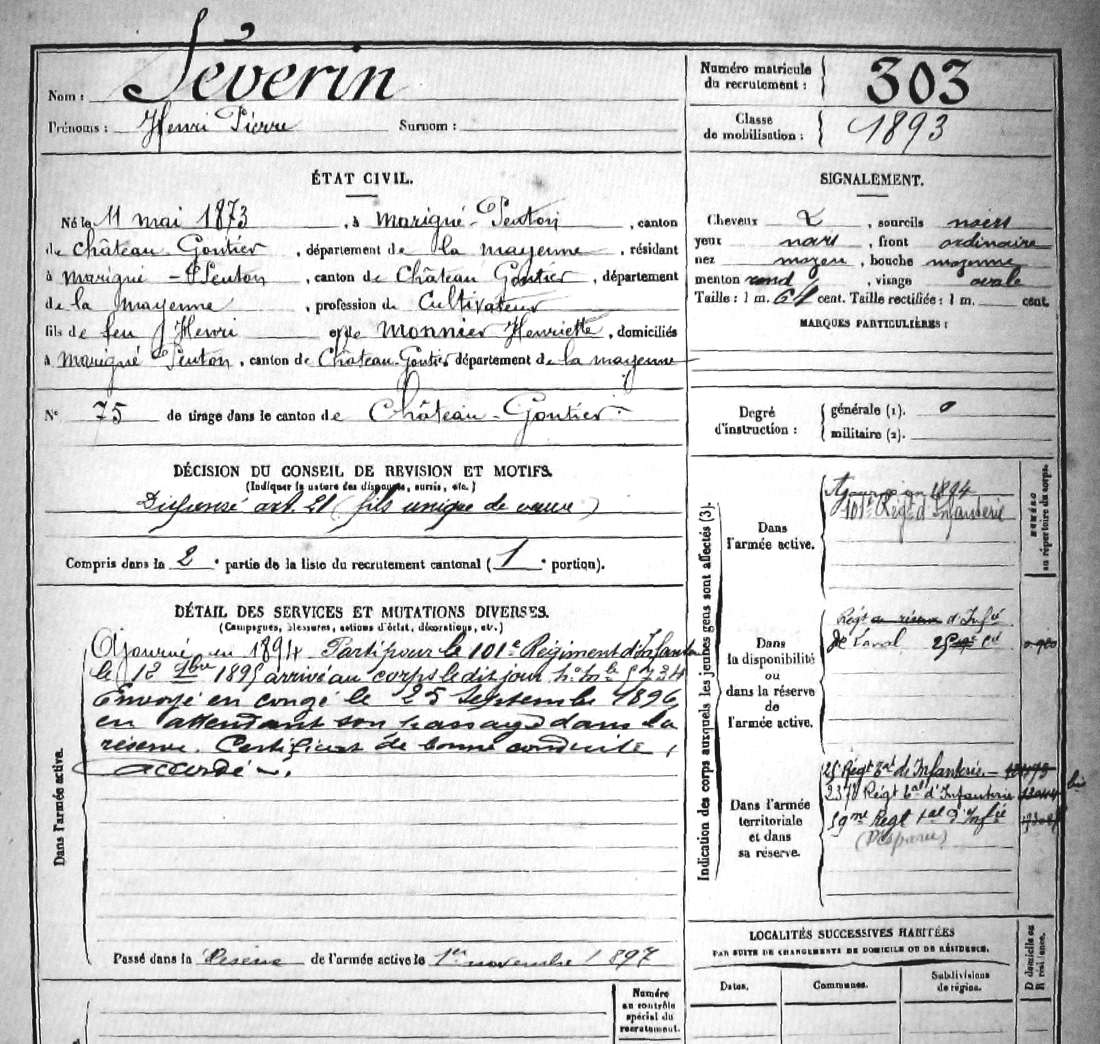 Nom : Séverin
Prénoms : Henri Pierre Surnom :
Numéro matricule
du recrutement : 303
Classe
de mobilisation : 1893
ÉTAT CIVIL.
Né le 11 mai 1873, à Marigné-Peuton, canton
de Château Gontier, département de la mayenne, résidant
à Marigné-Peuton, canton de Château Gontier, département
de la mayenne, profession de Cultivateur
fils de feu Henri et de Monnier Henriette, domiciliés
à Marigné Peuton, canton de Château-Gontier département de la mayenne
N° 75 de tirage dans le canton de Château-Gontier
SIGNALEMENT.
Cheveux, sourcils noirs
yeux noirs, front ordinaire
nez moyen, bouche moyenne
menton rond, visage ovale
Taille : 1 m. 64 cent. Taille rectifiée : 1 m. cent.
MARQUES PARTICULIÈRES :
Degré
d'instruction :
générale (1). 0
militaire (2).
DÉCISION DU CONSEIL DE REVISION ET MOTIFS.
(Indiquer la nature des dispenses, sursis, etc.)
Dispensé art. 21 (fils unique de veuve)
Compris dans la 2e partie de la liste du recrutement cantonal (1e portion).
DÉTAIL DES SERVICES ET MUTATIONS DIVERSES.
(Campagnes, blessures, actions d'éclat, décorations, etc.)
Dans l'armée active.
Ajourné en 1894 Parti pour le 101e Régiment d'Infanterie
le 1895 arrivé au corps le dit jour
Envoyé en congé le 25 Septembre 1896
en attendant son passage dans la
réserve. Certificat de bonne conduite
accordé.
Passé dans la Réserve de l'armée active le 1er novembre 1897
Numéro
au contrôle
spécial du
recrutement.
Indication des corps auxquels les jeunes gens sont affectés (3).
NUMÉRO
au répertoire du corps.
Dans
l'armée active.
Ajourné en 1894
101e Régt d'Infanterie
Dans
la disponibilité
ou
dans la réserve
de
l'armée active.
Régt de réserve d'Infie
de Laval
Dans l'armée
territoriale
et dans
sa réserve.
25e Régt Tal d'Infanterie
Régt Tal d'Infanterie bis
Régt Tal d'Infie
(Disparu)
LOCALITÉS SUCCESSIVES HABITÉES
PAR SUITE DE CHANGEMENTS DE DOMICILE OU DE RÉSIDENCE.
Dates. Communes. Subdivisions
de région.
D domicile ou
R résidence.